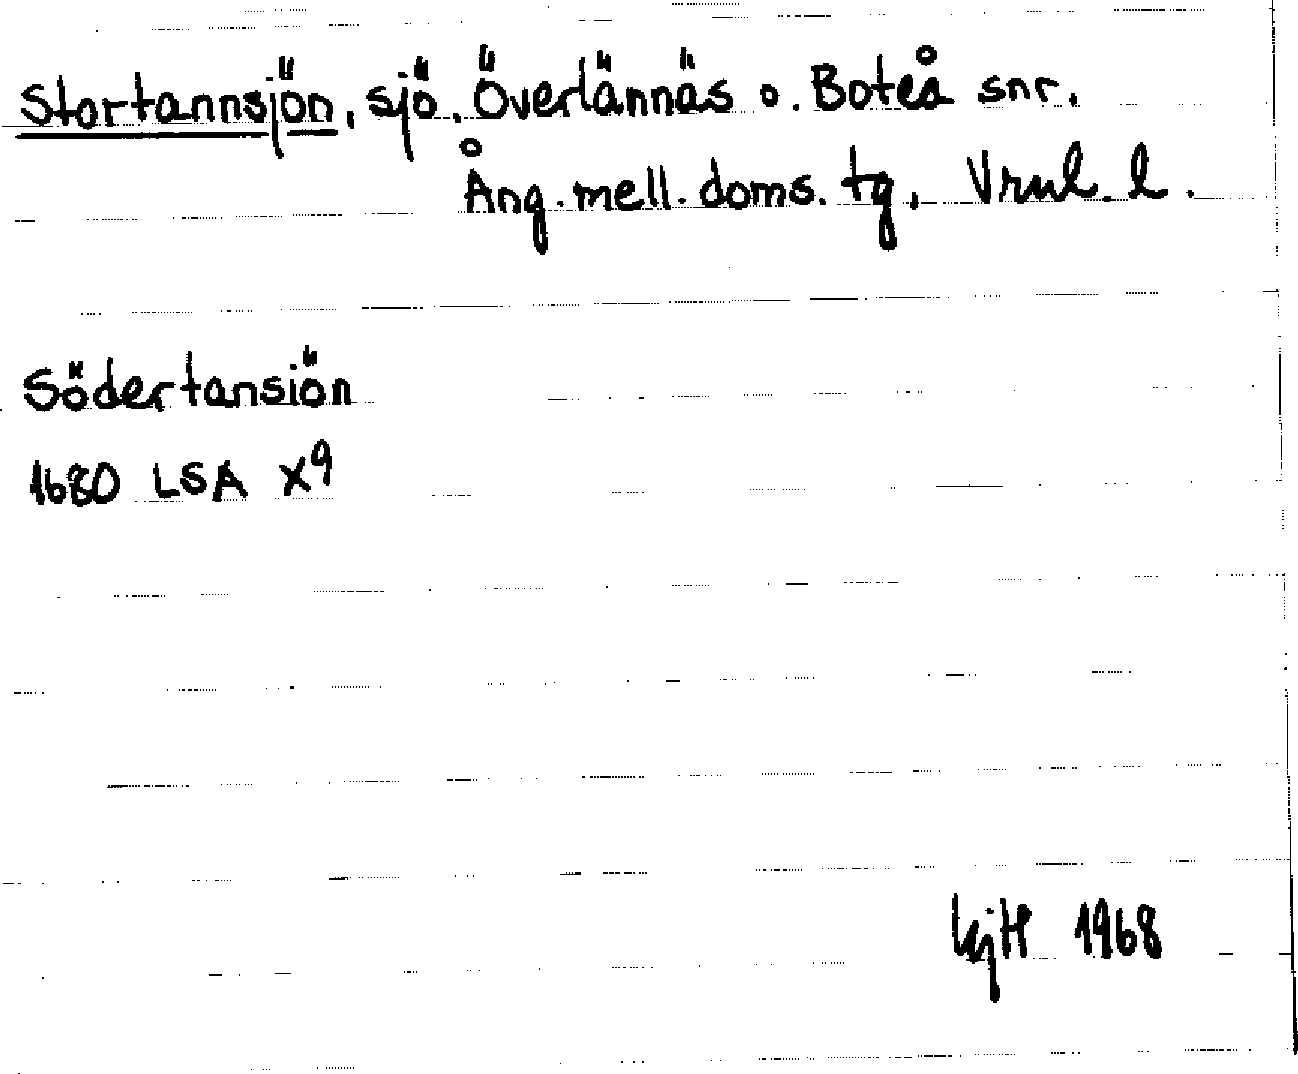 Stortannsjön, sjö. Överlännäs o. Boteå snr.
Ång. mell. doms. tg, Vrnl. l.
Södertansiön
1680 LSA X9
1968